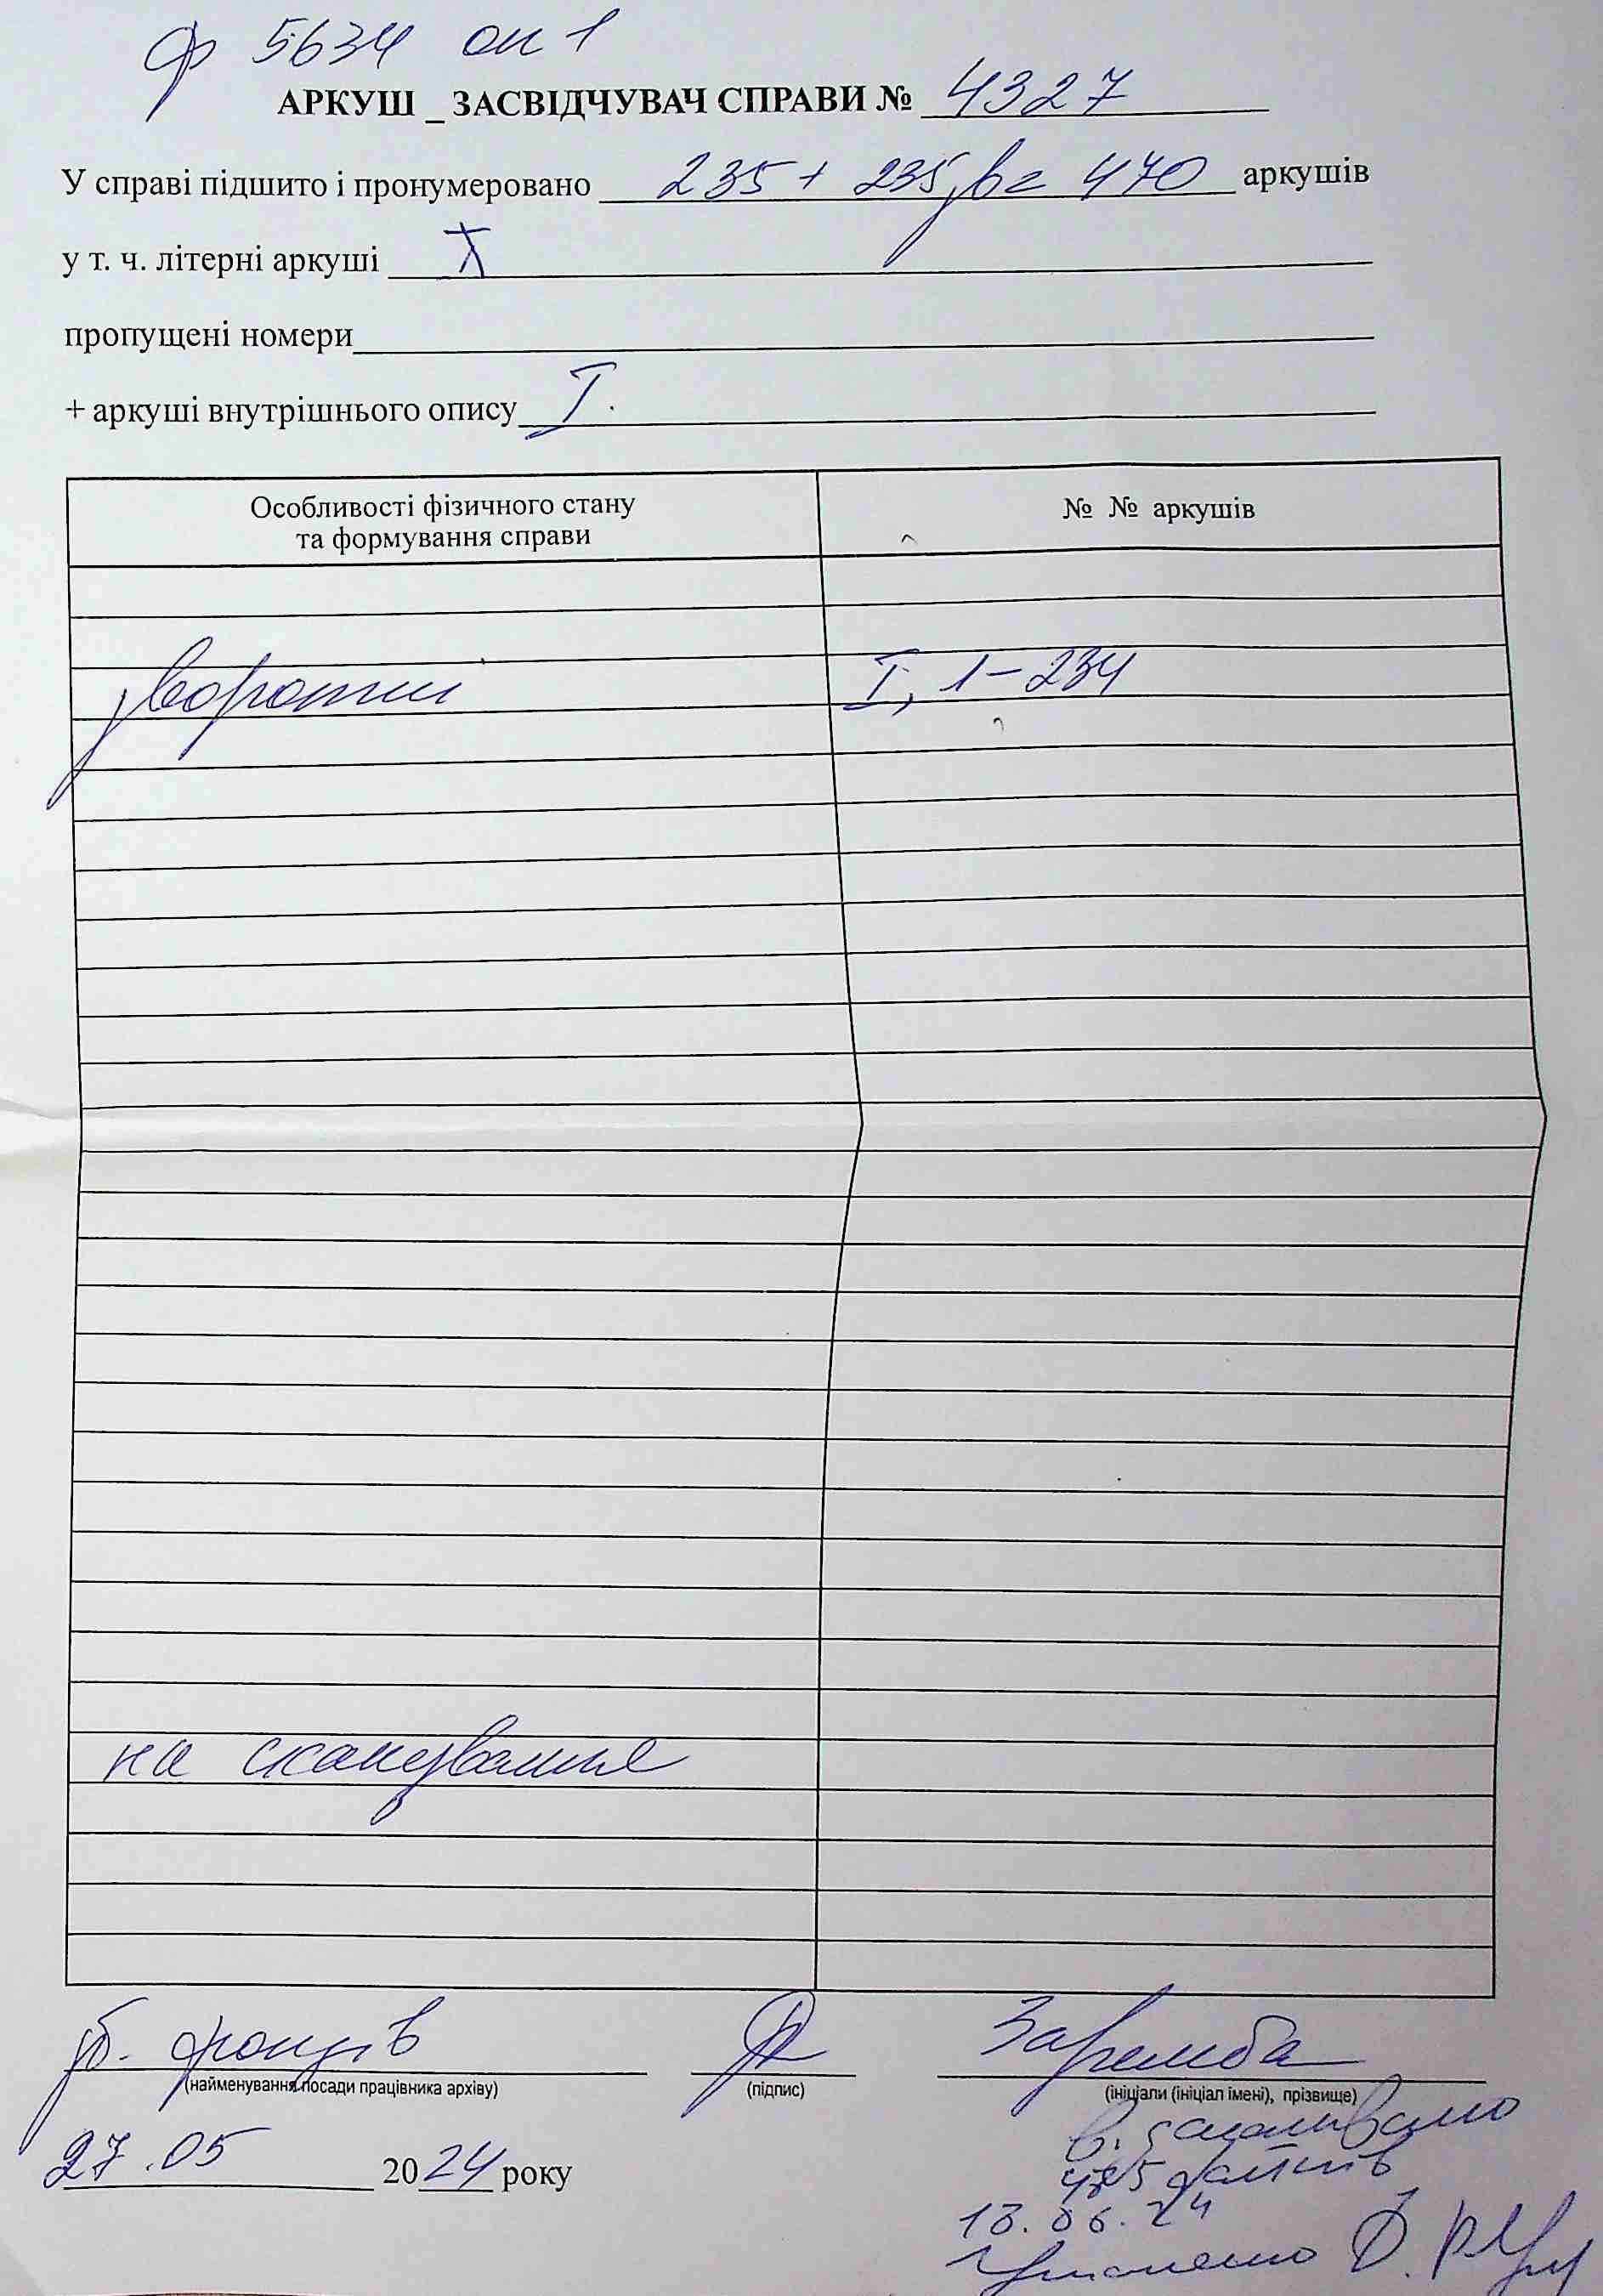 ф 5634 оп 1
АРКУШ _ ЗАСВІДЧУВАЧ СПРАВИ № 4327
У справі підшито і пронумеровано 235 + 235 зв = 470 аркушів
у т. ч. літерні аркуші I
пропущені номери
+ аркуші внутрішнього опису I.
Особливості фізичного стану та формування справи
№ № аркушів
звороти I, 1-234
на сканування
зб. фондів Заремба
(найменування посади працівника архіву) (підпис) (ініціали (ініціал імені), прізвище)
27.05 2024 року
файлів
13.06.24